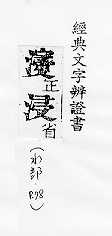 經典文字辨證書
濅正浸省
(水部.P.98)